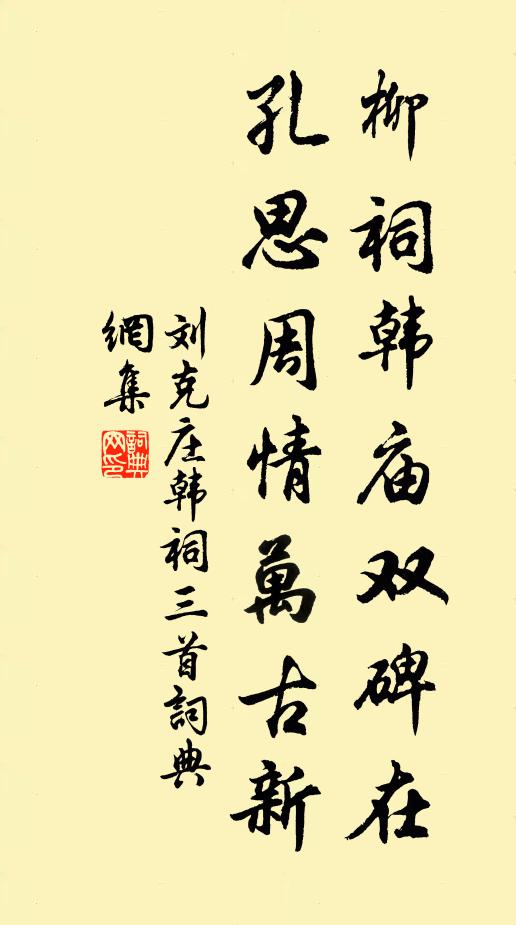 柳祠韩庙双碑在
孔思周情萬古新
刘克庄韩祠三首詞典
網集
詞典
网印